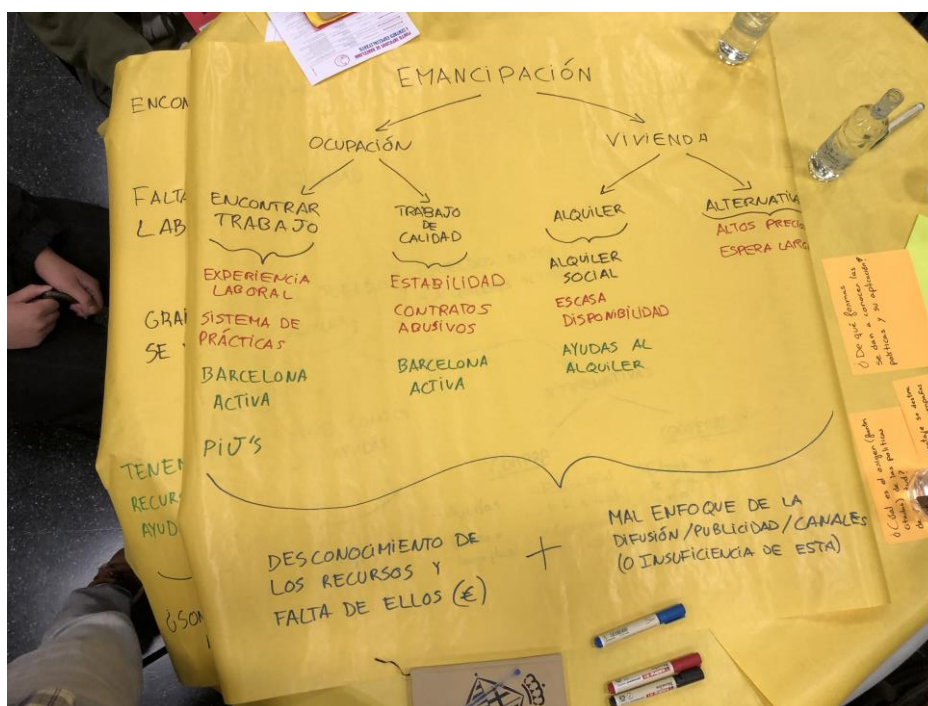 EMANCIPACIÓN
OCUPACIÓN
VIVIENDA
ENCONTRAR
TRABAJO
EXPERIENCIA
LABORAL
SISTEMA DE
PRÁCTICAS
BARCELONA
ACTIVA
PIJ'S
TRABAJO
DE
CALIDAD
ESTABILIDAD
CONTRATOS
ABUSIVOS
BARCELONA
ACTIVA
ALQUILER
ALQUILER
SOCIAL
ESCASA
DISPONIBILIDAD
AYUDAS AL
ALQUILER
ALTERNATIVA
ALTOS PRECIO
ESPERA LARG
DESCONOCIMIENTO DE
LOS RECURSOS Y
FALTA DE ELLOS (€)
+
MAL ENFOQUE DE LA
DIFUSIÓN/PUBLICIDAD/CANALES
(O INSUFICIENCIA DE ESTA)
ENCON
FALTA
LAB
GRA
SE
TENEN
RECURS
AYUD
¿SON
¿De qué formas
se dan a conocer las
políticas y su aplicación?
¿Cuál es el origen
de las políticas